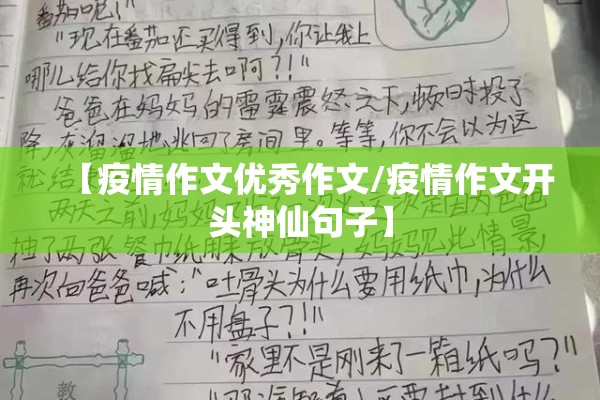 番茄呢!"
"现在番茄还买得到,你让我上
哪儿给你找扁尖去啊?!"
爸爸在妈妈的雷霆震怒之下,顿时投了
降,灰溜溜地逃回了房间里。等等,你不会以为这
就结束
【疫情作文优秀作文/疫情作文开
头神仙句子】
两天之前,妈妈 次是因为爸爸
抽了两张餐巾纸用来放骨头,妈妈见此情景,
再次向爸爸喊:"吐骨头为什么要用纸巾,为什么
不用盘子?!"
"家里不是刚来了一箱纸吗?"
教